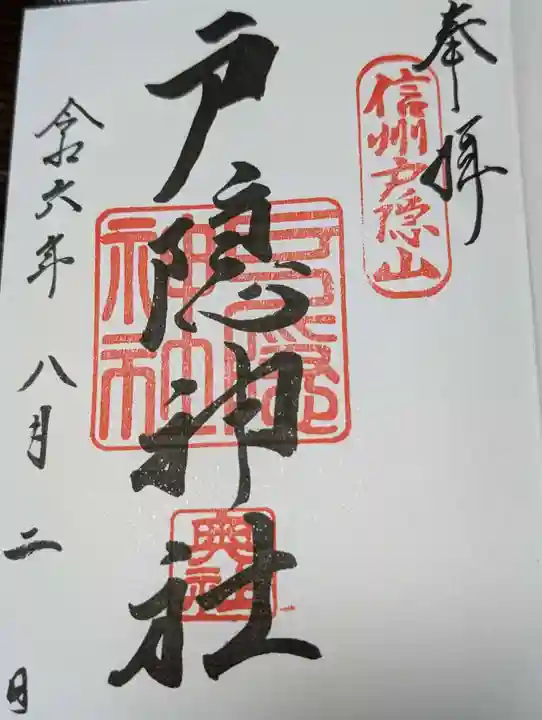 奉拝
信州戸隠山
戸隠神社
戸隠
神社
奥社
令和六年 八月 二日